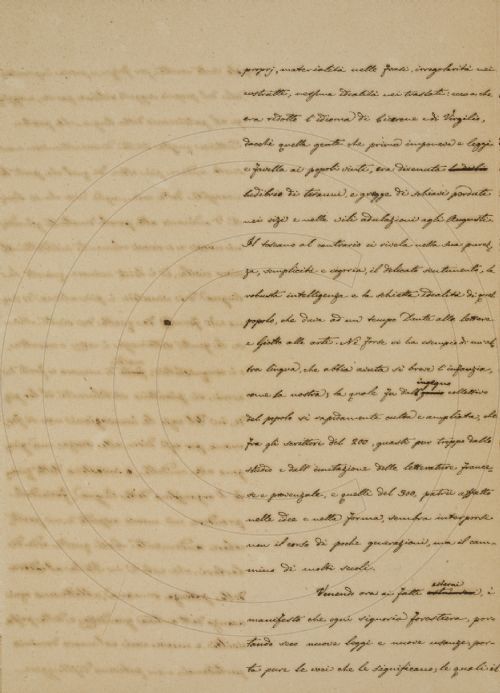 proprj, materialità nelle frasi, irregolarità nei
costrutti, nessuna idealità nei traslati: ecco a che
era ridotto l'idioma di Cicerone e di Virgilio,
dacchè quella gente che prima imponeva e leggi
e favella ai popoli vinti, era divenuta
ludibrio di tiranni, e gregge di schiavi perduti
nei vizi e nelle vili adulazioni agli Augusti.
Il toscano al contrario ci rivela nella sua purez-
za, semplicità e vigoria, il delicato sentimento, la
robusta intelligenza e la schietta idealità di quel
popolo, che dava ad un tempo Dante alle lettere
e Giotto alle arti. Nè forse vi ha esempio di un'al-
tra lingua, che abbia avuta sì breve l'infanzia,
come la nostra; la quale fu dall'ingegno collettivo
del popolo sì rapidamente culta e ampliata, che
fra gli scrittori del 200, guasti pur troppo dallo
studio e dall'imitazione delle letterature france-
se e provenzale, e quelli del 300, patrii affatto
nelle idee e nella forma, sembra interporsi
non il corso di poche generazioni, ma il cam-
mino di molti secoli.
Venendo ora ai fatti esterni, è
manifesto che ogni signoria forestiera, por-
tando seco nuove leggi e nuove usanze, por-
ta pure le voci che le significano; le quali